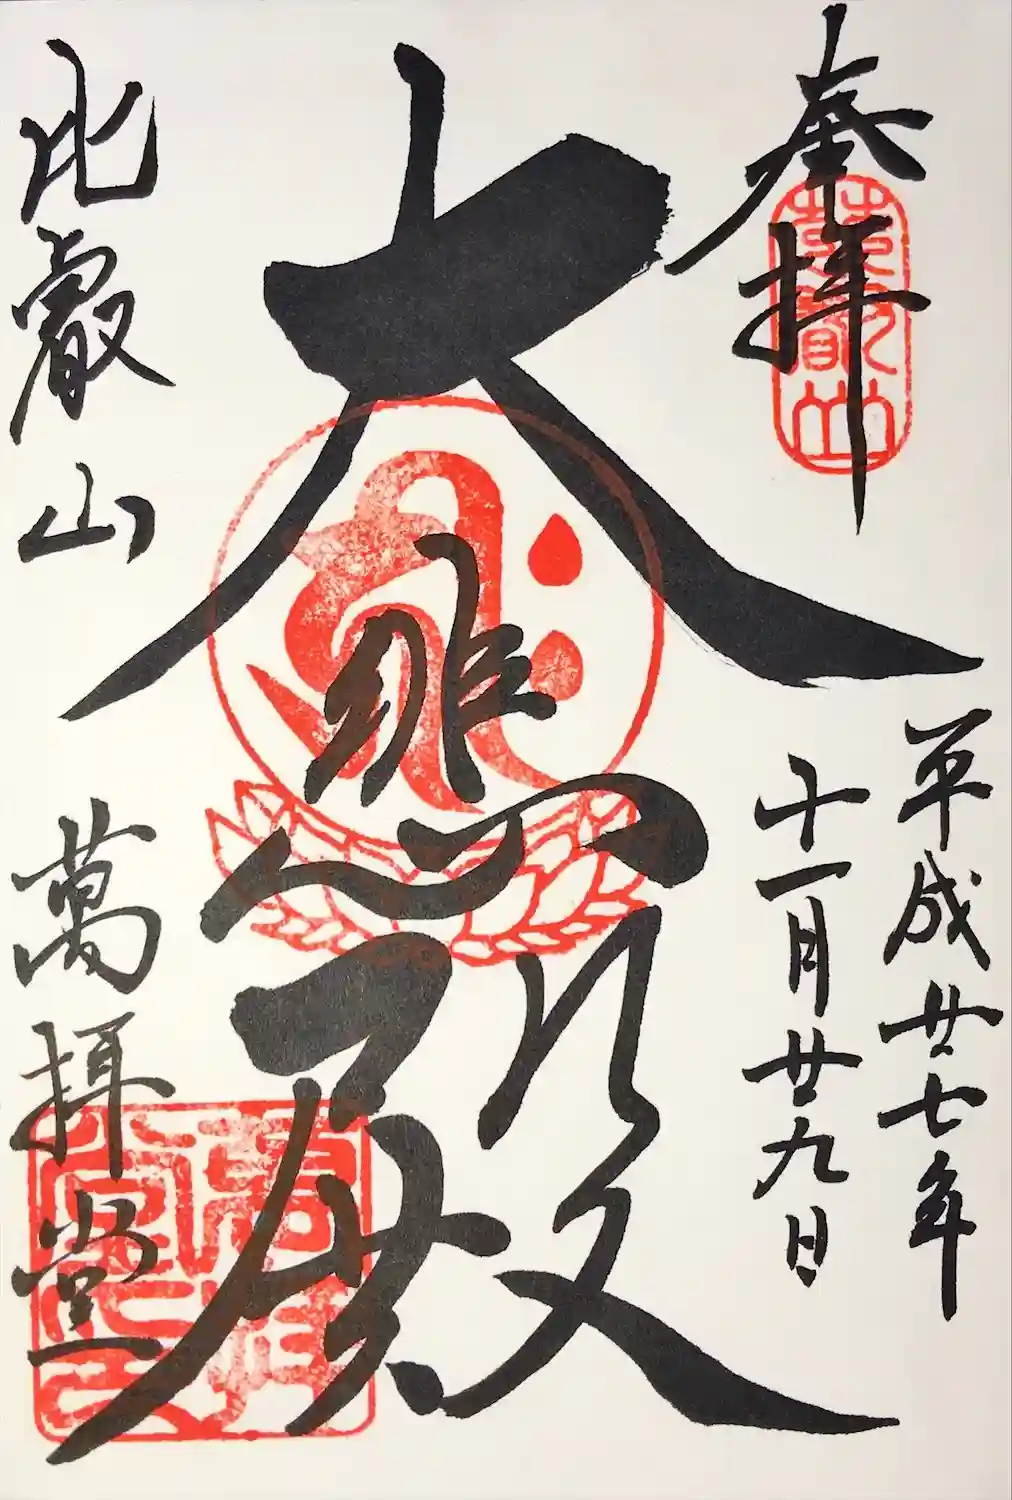 奉拝
平成廿七年
十一月廿九日
大悲殿
比叡山 萬拝堂
比叡山